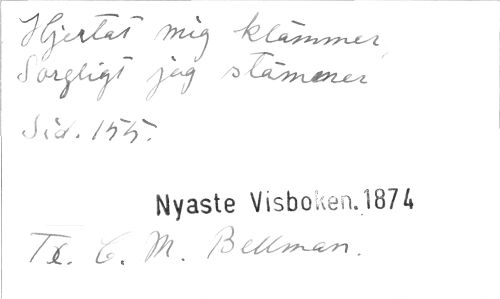 Hjertat mig klämmer,
Sorgligt jag stämmer
Sid. 155.
Nyaste Visboken. 1874
Tx. C. M. Bellman.